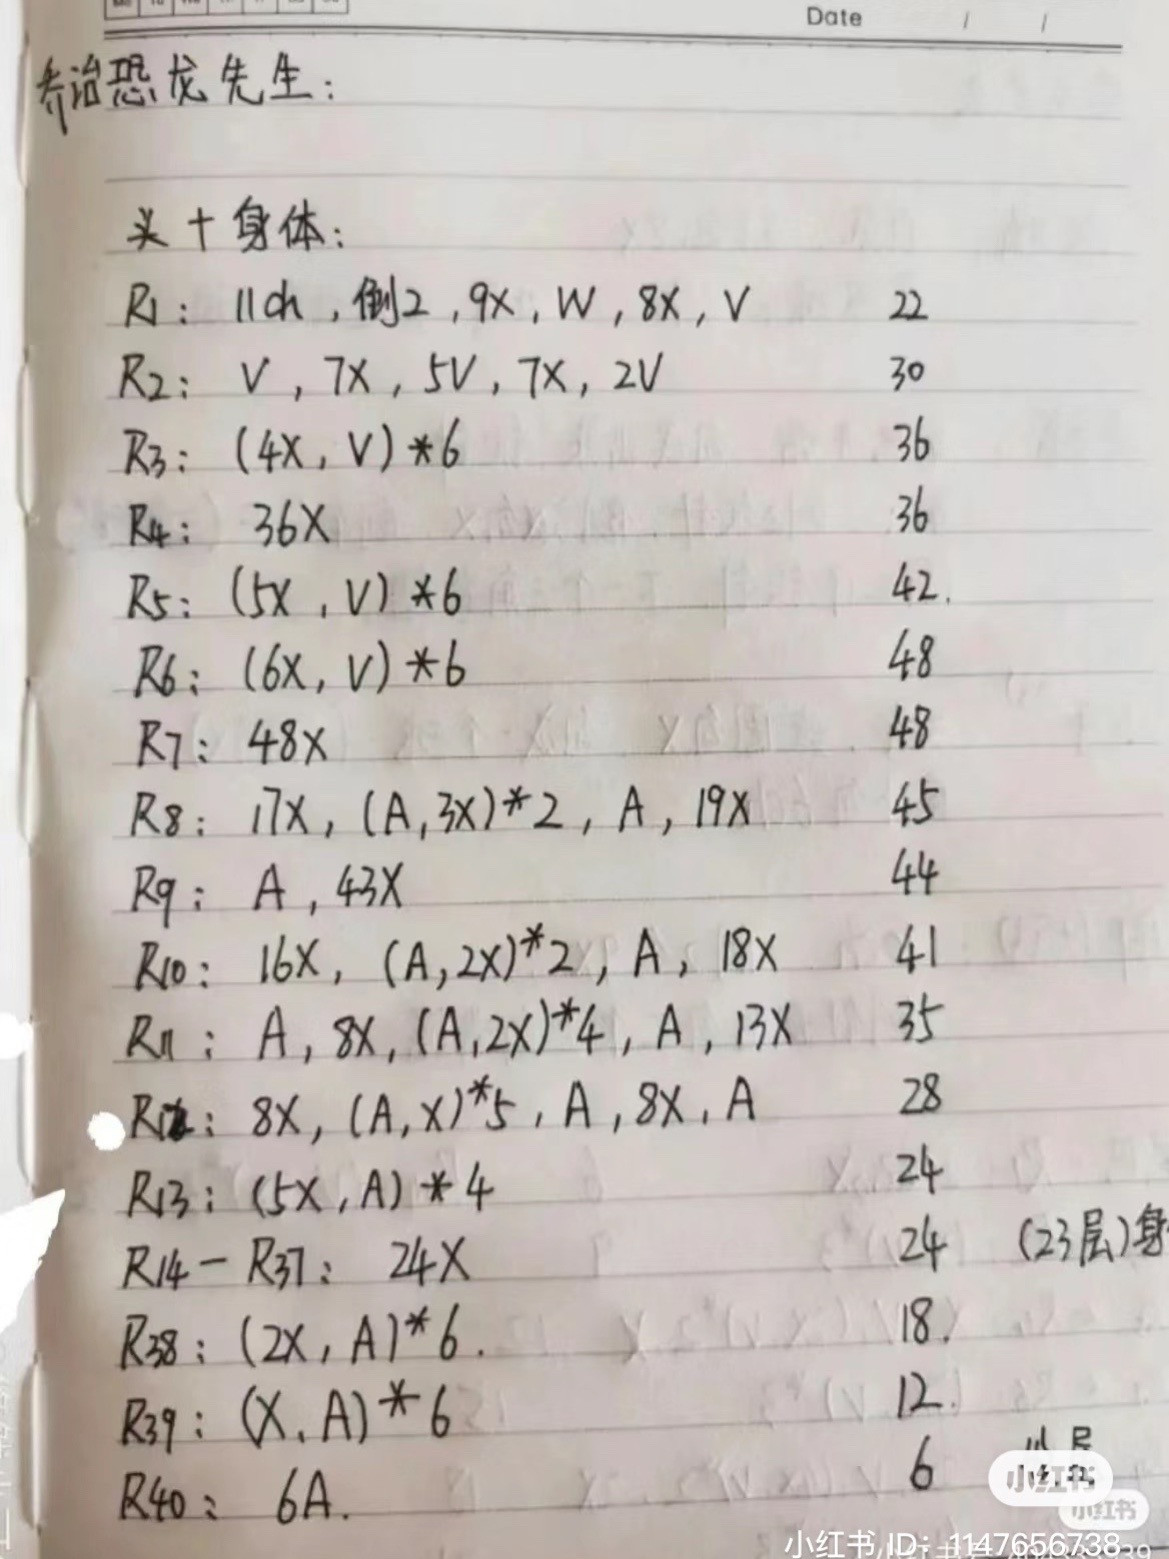 Date / /
乔治恐龙先生:
头+身体:
R1: 11ch, 倒2, 9X, W, 8X, V 22
R2: V, 7X, 5V, 7X, 2V 30
R3: (4X, V)*6 36
R4: 36X 36
R5: (5X, V)*6 42.
R6: (6X, V)*6 48
R7: 48X 48
R8: 17X, (A,3X)*2, A, 19X 45
R9: A, 43X 44
R10: 16X, (A,2X)*2, A, 18X 41
R11: A, 8X, (A,2X)*4, A, 13X 35
R12: 8X, (A,X)*5, A, 8X, A 28
R13: (5X,A)*4 24
R14-R37: 24X 24 (23层)身
R38: (2X,A)*6. 18.
R39: (X.A)*6 12.
R40: 6A. 6
小红书
小红书
小红书 ID: 1147656738